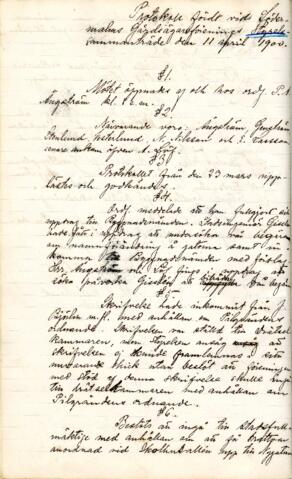 Protokoll fördt vid Söder-
malms Gårdsägareförenings Styrelse-
sammanträde den 11 april 1900.
§1.
Mötet öppnades af v. ordf. P. A.
Ångström kl. 7 e.m.
§2.
Närvarande voro: Ångström,
Stenlund, Vesterlund, Nilsson och Larsson
senare ankom äfven
§3
Protokollet från den 23 mars upp-
lästes och godkändes.
§4.
Ordf. meddelade att han fullgjort sin
uppdrag till Byggnadsnämden.
hade fått i uppdrag att undersöka om
om namnförändring å gatorna samt in-
komma till Byggnadsnämden med förslag
Hrr Ångström och fingo i uppdrag att
söka påverka
§5
Skrifvelse hade inkommit från J.
Björlin m.fl. med anhållan om Pilgrändens
ordnande. Skrifvelsen var ställd till Drätsel-
kammaren, men Styrelsen ansåg att
skrifvelsen ej kunde framlämnas i sitt
nuvarande skick utan beslöt att föreningen
med stöd af denna skrifvelse skulle ingå
till Drätselkammaren med anhållan om
Pilgrändens ordnande.
§6.
Beslöts att ingå till Stadsfull-
mäktige med anhållan om att få trottoar
anordnad vid upp till Nygatan